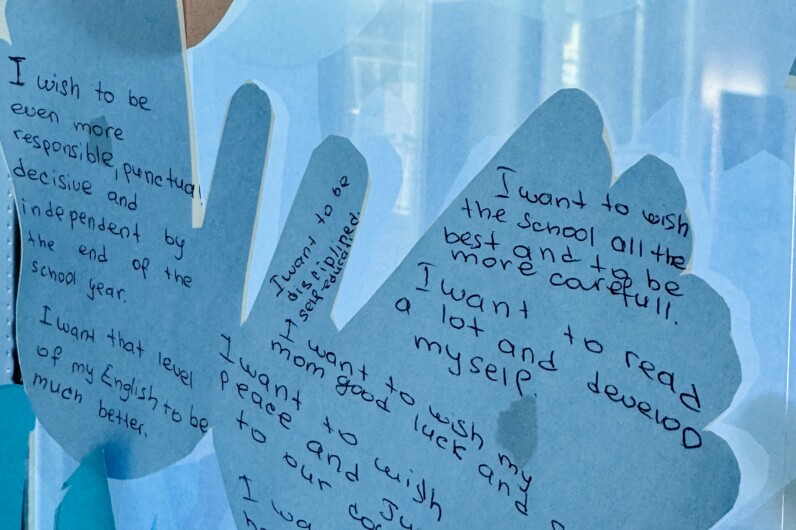 I wish to be
even more
responsible, punctual
decisive and
independent by
the end of the
school year.
I want that level
of my English to be
much better.
I want to be
disciplined.
self-educated
I want to wish
the school all the
best and to be
more carefull.
I want to read
a lot and develop
myself.
I want to wish my
mom good luck and
I want to wish
peace and
to our
I